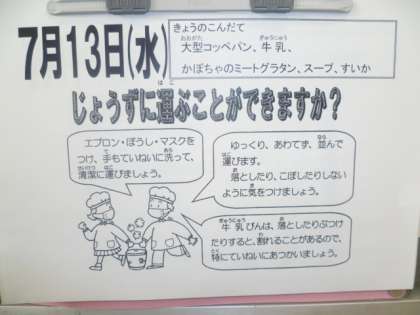 7月13日(水)
きょうのこんだて
大型コッペパン、牛乳、
かぼちゃのミートグラタン、スープ、すいか
じょうずに運ぶことができますか？
エプロン・ぼうし・マスクを
つけ、手もていねいに洗って、
清潔に運びましょう。
ゆっくり、あわてず、並んで
運びます。
落としたり、こぼしたりしない
ように気をつけましょう。
牛乳びんは、落としたりぶつけ
たりすると、割れることがあるので、
特にていねいにあつかいましょう。